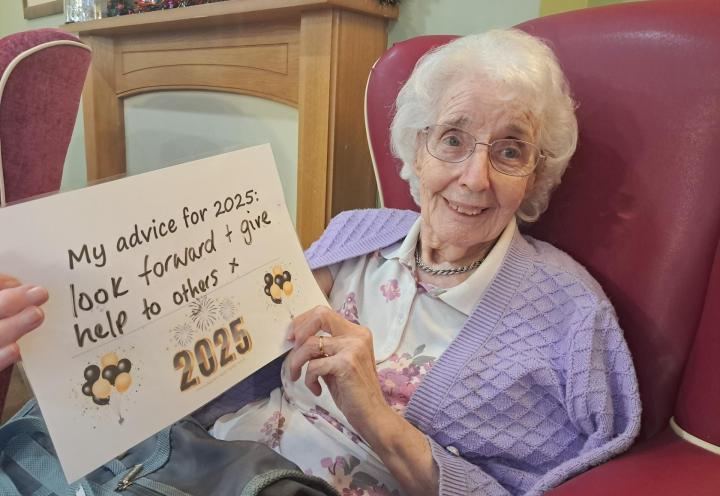 My advice for 2025:
look forward + give
help to others x
2025